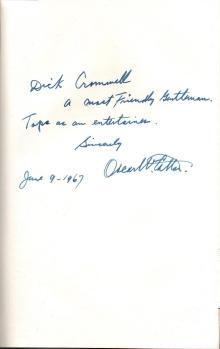 Dick Cromwell
a most Friendly Gentleman.
Tops as an entertainer.
Sincerely
June 9-1967
Oscar